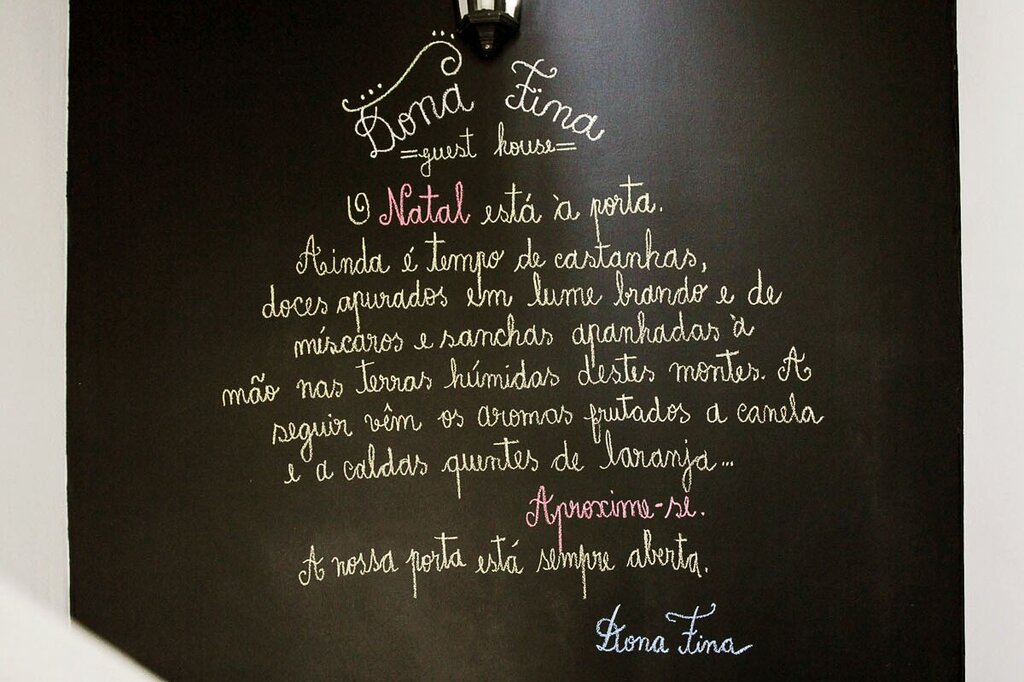 Dona Fina
=guest house=
O Natal está à porta.
Ainda é tempo de castanhas,
doces apurados em lume brando e de
míscaros e sanchas apanhadas à
mão nas terras húmidas destes montes. A
seguir vêm os aromas frutados a canela
e a caldas quentes de laranja...
Aproxime-se.
A nossa porta está sempre aberta.
Dona Fina